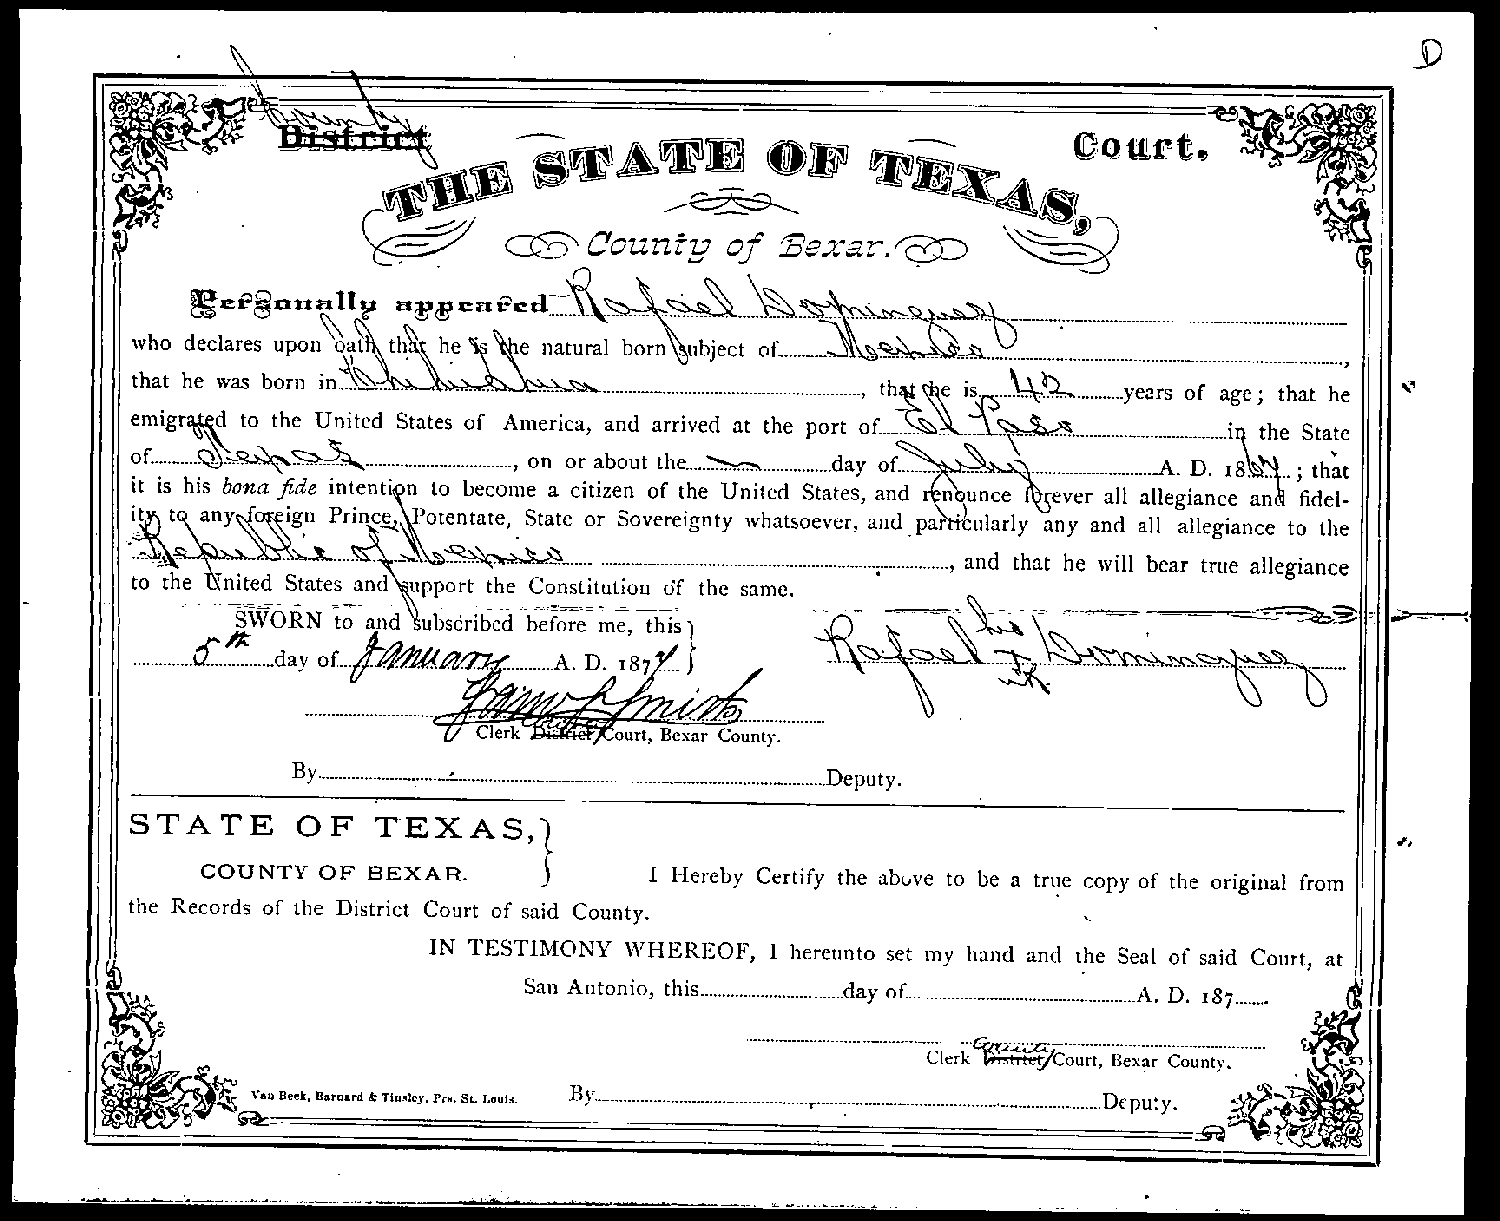 D
County
District Court.
THE STATE OF TEXAS,
County of Bexar.
Personally appeared Rafael Dominguez
who declares upon oath that he is the natural born subject of Mexico,
that he was born in Chihuahua, that he is 42 years of age; that he
emigrated to the United States of America, and arrived at the port of El Paso in the State
of Texas, on or about the — day of July A. D. 1867; that
it is his bona fide intention to become a citizen of the United States, and renounce forever all allegiance and fidel-
ity to any foreign Prince, Potentate, State or Sovereignty whatsoever, and particularly any and all allegiance to the
Republic of Mexico, and that he will bear true allegiance
to the United States and support the Constitution of the same.
SWORN to and subscribed before me, this
5th day of January A. D. 187
Rafael his x Dominguez
Smith
Clerk District County Court, Bexar County.
By Deputy.
STATE OF TEXAS,
COUNTY OF BEXAR.
I Hereby Certify the above to be a true copy of the original from
the Records of the District Court of said County.
IN TESTIMONY WHEREOF, I hereunto set my hand and the Seal of said Court, at
San Antonio, this day of A. D. 187
County
Clerk District Court, Bexar County.
Van Beek, Barnard & Tinsley, Prs. St. Louis. By Deputy.